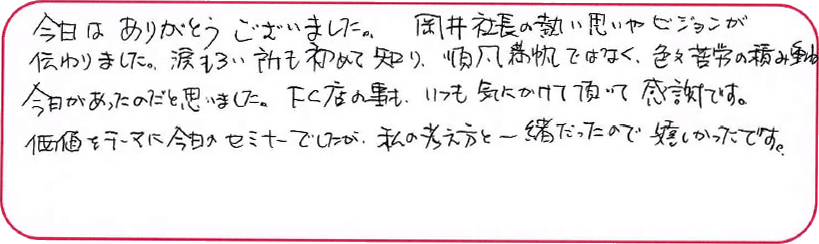 今日は ありがとう ございました。 岡井社長の熱い思いや ビジョンが
伝わりました。涙もろい所も初めて知り、順風満帆ではなく、色々苦労の積み重ね
今日があったのだと思いました。FC店の事も、いつも気にかけて頂いて 感謝です。
価値をテーマに今日のセミナーでしたが、私の考え方と一緒だったので 嬉しかったです。